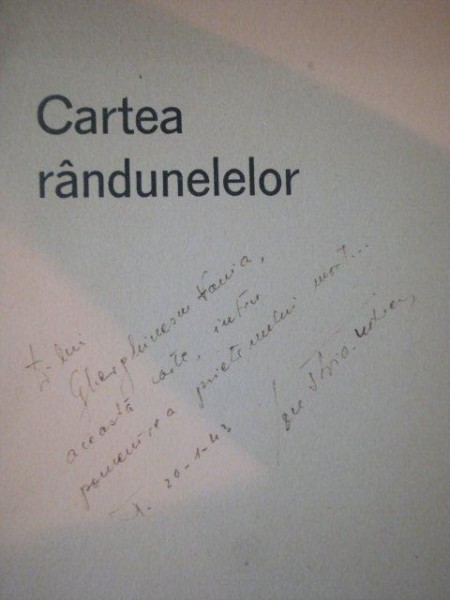 Cartea
rândunelelor
D-lui
Gherghinescu Vania,
această carte, întru
pomenirea prietenului mort...
20-1-43